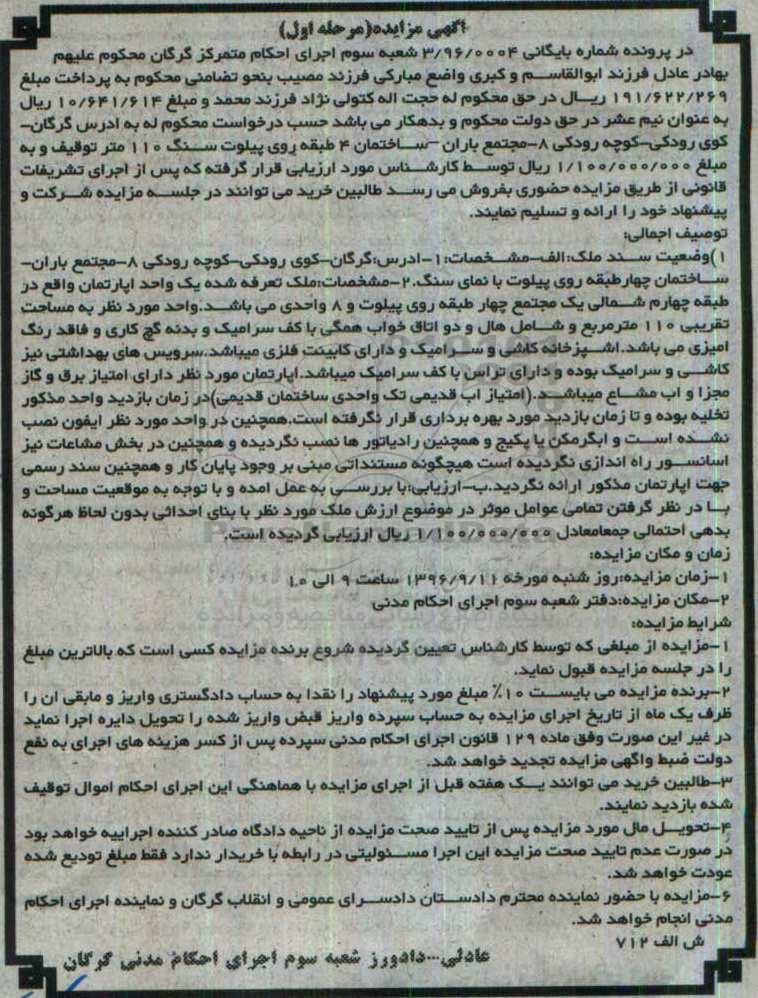 آگهی مزایده(مرحله اول)
در پرونده شماره بایگانی ۳/۹۶/۰۰۰۴ شعبه سوم اجرای احکام متمرکز گرگان محکوم علیهم
بهادر عادل فرزند ابوالقاسم و کبری واضع مبارکی فرزند مصیب بنحو تضامنی محکوم به پرداخت مبلغ
۱۹۱/۶۲۲/۲۶۹ ریال در حق محکوم له حجت اله کتولی نژاد فرزند محمد و مبلغ ۱۰/۶۴۱/۶۱۴ ریال
به عنوان نیم عشر در حق دولت محکوم و بدهکار می باشد حسب درخواست محکوم له به ادرس گرگان-
کوی رودکی-کوچه رودکی ۸-مجتمع باران -ساختمان ۴ طبقه روی پیلوت سنگ ۱۱۰ متر توقیف و به
مبلغ ۱/۱۰۰/۰۰۰/۰۰۰ ریال توسط کارشناس مورد ارزیابی قرار گرفته که پس از اجرای تشریفات
قانونی از طریق مزایده حضوری بفروش می رسد طالبین خرید می توانند در جلسه مزایده شرکت و
پیشنهاد خود را ارائه و تسلیم نمایند.
توصیف اجمالی:
۱)وضعیت سند ملک:الف-مشخصات:۱-ادرس:گرگان-کوی رودکی-کوچه رودکی ۸-مجتمع باران-
ساختمان چهارطبقه روی پیلوت با نمای سنگ.۲-مشخصات:ملک تعرفه شده یک واحد اپارتمان واقع در
طبقه چهارم شمالی یک مجتمع چهار طبقه روی پیلوت و ۸ واحدی می باشد.واحد مورد نظر به مساحت
تقریبی ۱۱۰ مترمربع و شامل هال و دو اتاق خواب همگی با کف سرامیک و بدنه گچ کاری و فاقد رنگ
امیزی می باشد.اشپزخانه کاشی و سرامیک و دارای کابینت فلزی میباشد.سرویس های بهداشتی نیز
کاشی و سرامیک بوده و دارای تراس با کف سرامیک میباشد.اپارتمان مورد نظر دارای امتیاز برق و گاز
مجزا و اب مشاع میباشد.(امتیاز اب قدیمی تک واحدی ساختمان قدیمی)در زمان بازدید واحد مذکور
تخلیه بوده و تا زمان بازدید مورد بهره برداری قرار نگرفته است.همچنین در واحد مورد نظر ایفون نصب
نشده است و ابگرمکن یا پکیج و همچنین رادیاتور ها نصب نگردیده و همچنین در بخش مشاعات نیز
اسانسور راه اندازی نگردیده است هیچگونه مستنداتی مبنی بر وجود پایان کار و همچنین سند رسمی
جهت اپارتمان مذکور ارائه نگردید.ب-ارزیابی:با بررسی به عمل امده و با توجه به موقعیت مساحت و
با در نظر گرفتن تمامی عوامل موثر در موضوع ارزش ملک مورد نظر با بنای احداثی بدون لحاظ هرگونه
بدهی احتمالی جمعامعادل ۱/۱۰۰/۰۰۰/۰۰۰ ریال ارزیابی گردیده است.
زمان و مکان مزایده:
۱-زمان مزایده:روز شنبه مورخه ۱۳۹۶/۹/۱۱ ساعت ۹ الی ۱۰
۲-مکان مزایده:دفتر شعبه سوم اجرای احکام مدنی
شرایط مزایده:
۱-مزایده از مبلغی که توسط کارشناس تعیین گردیده شروع برنده مزایده کسی است که بالاترین مبلغ
را در جلسه مزایده قبول نماید.
۲-برنده مزایده می بایست ۱۰٪ مبلغ مورد پیشنهاد را نقدا به حساب دادگستری واریز و مابقی ان را
ظرف یک ماه از تاریخ اجرای مزایده به حساب سپرده واریز قبض واریز شده را تحویل دایره اجرا نماید
در غیر این صورت وفق ماده ۱۲۹ قانون اجرای احکام مدنی سپرده پس از کسر هزینه های اجرای به نفع
دولت ضبط واگهی مزایده تجدید خواهد شد.
۳-طالبین خرید می توانند یک هفته قبل از اجرای مزایده با هماهنگی این اجرای احکام اموال توقیف
شده بازدید نمایند.
۴-تحویل مال مورد مزایده پس از تایید صحت مزایده از ناحیه دادگاه صادر کننده اجراییه خواهد بود
در صورت عدم تایید صحت مزایده این اجرا مسئولیتی در رابطه با خریدار ندارد فقط مبلغ تودیع شده
عودت خواهد شد.
۶-مزایده با حضور نماینده محترم دادستان دادسرای عمومی و انقلاب گرگان و نماینده اجرای احکام
مدنی انجام خواهد شد.
ش الف ۷۱۲
عادلی...دادورز شعبه سوم اجرای احکام مدنی گرگان